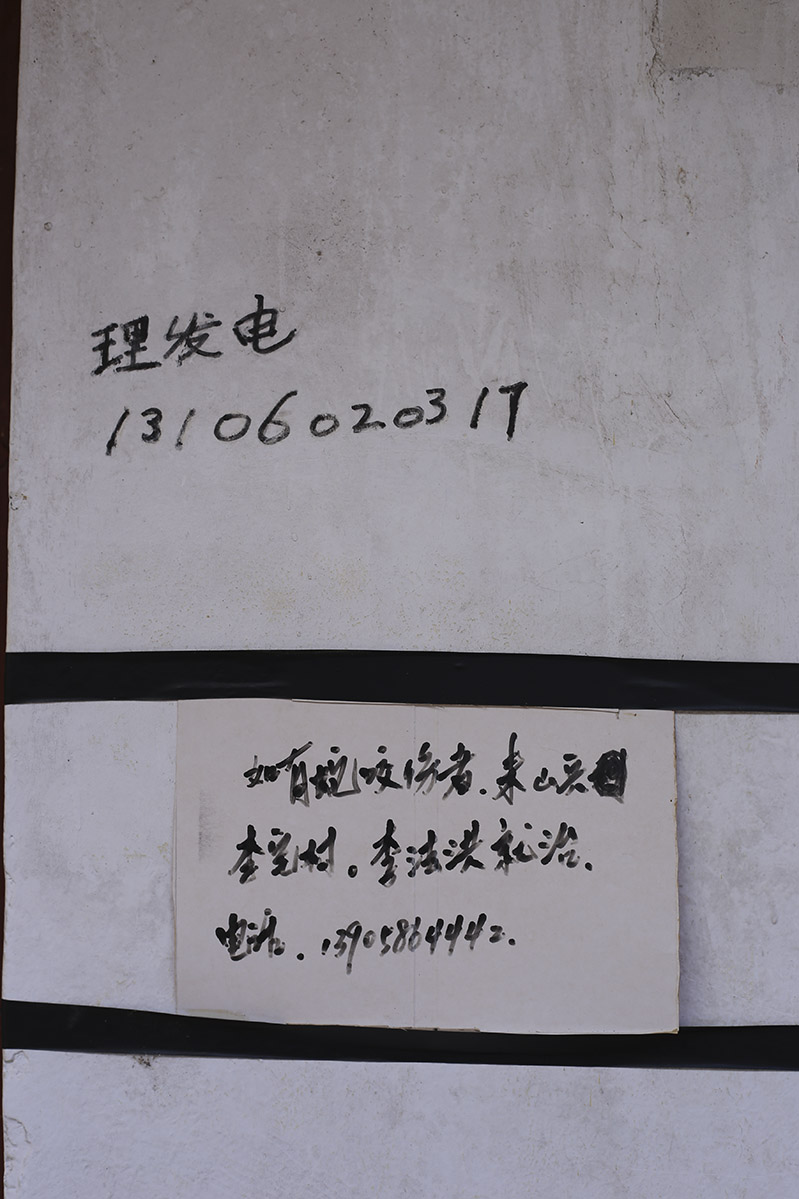 理发电
13106020317
如有蛇咬伤者.来山只
李宅村。李法洪就治.
电话.13905864442.